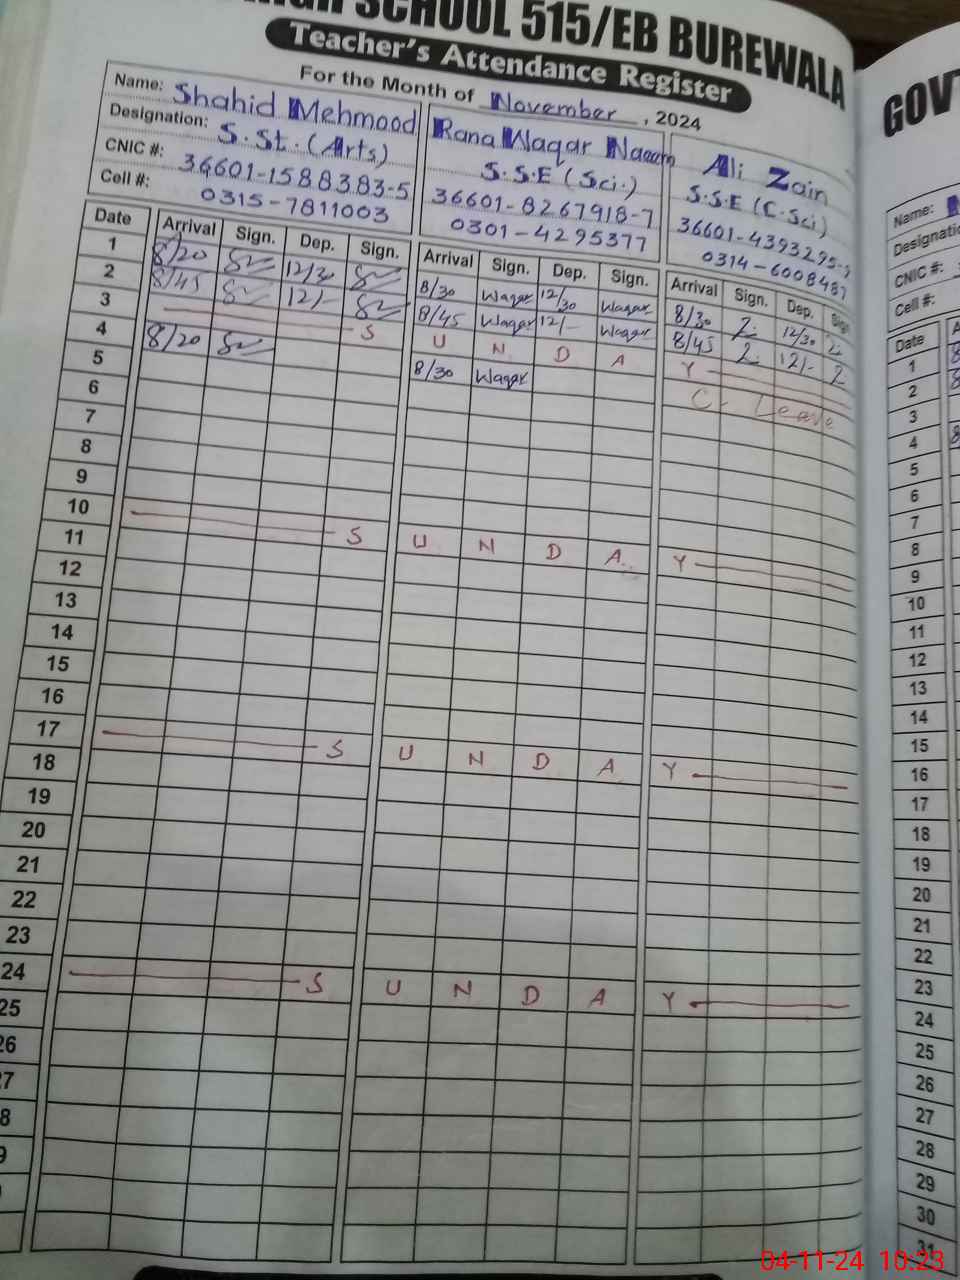 HIGH SCHOOL 515/EB BUREWALA
Teacher's Attendance Register
For the Month of November, 2024
Name: Shahid Mehmood Rana Waqar Naeem Ali Zain
Designation: S.St.(Arts) S.S.E (Sci.) S.S.E (C.Sci)
CNIC #: 36601-1588383-5 36601-8267918-7 36601-4393295-
Cell #: 0315-7811003 0301-4295377 0314-6008487
Date Arrival Sign. Dep. Sign. Arrival Sign. Dep. Sign. Arrival Sign. Dep. Sign
1 8/20 12/30 8/30 Waqar 12/30 Waqar 8/30 12/30
2 8/45 12/- 8/45 Waqar 12/- Waqar 8/45 12/-
3 S U N D A Y
4 8/20 8/30 Waqar C. Leave
5
6
7
8
9
10 S U N D A Y
11
12
13
14
15
16
17 S U N D A Y
18
19
20
21
22
23
24 S U N D A Y
25
26
7
8
9
GOVT
Name:
Designatio
CNIC #:
Cell #:
Date A
1
2
3
4
5
6
7
8
9
10
11
12
13
14
15
16
17
18
19
20
21
22
23
24
25
26
27
28
29
30
31
04-11-24 10:23